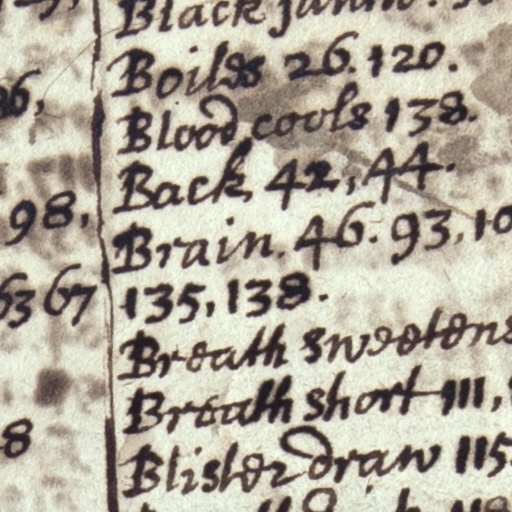 Black
Boiles 26. 120.
Blood cools 138.
Back, 42, 44.
98,
Brain. 46. 93, 10
63 67
135, 138.
Breath sweetens
Breath short 111,
8
Blister draw 115